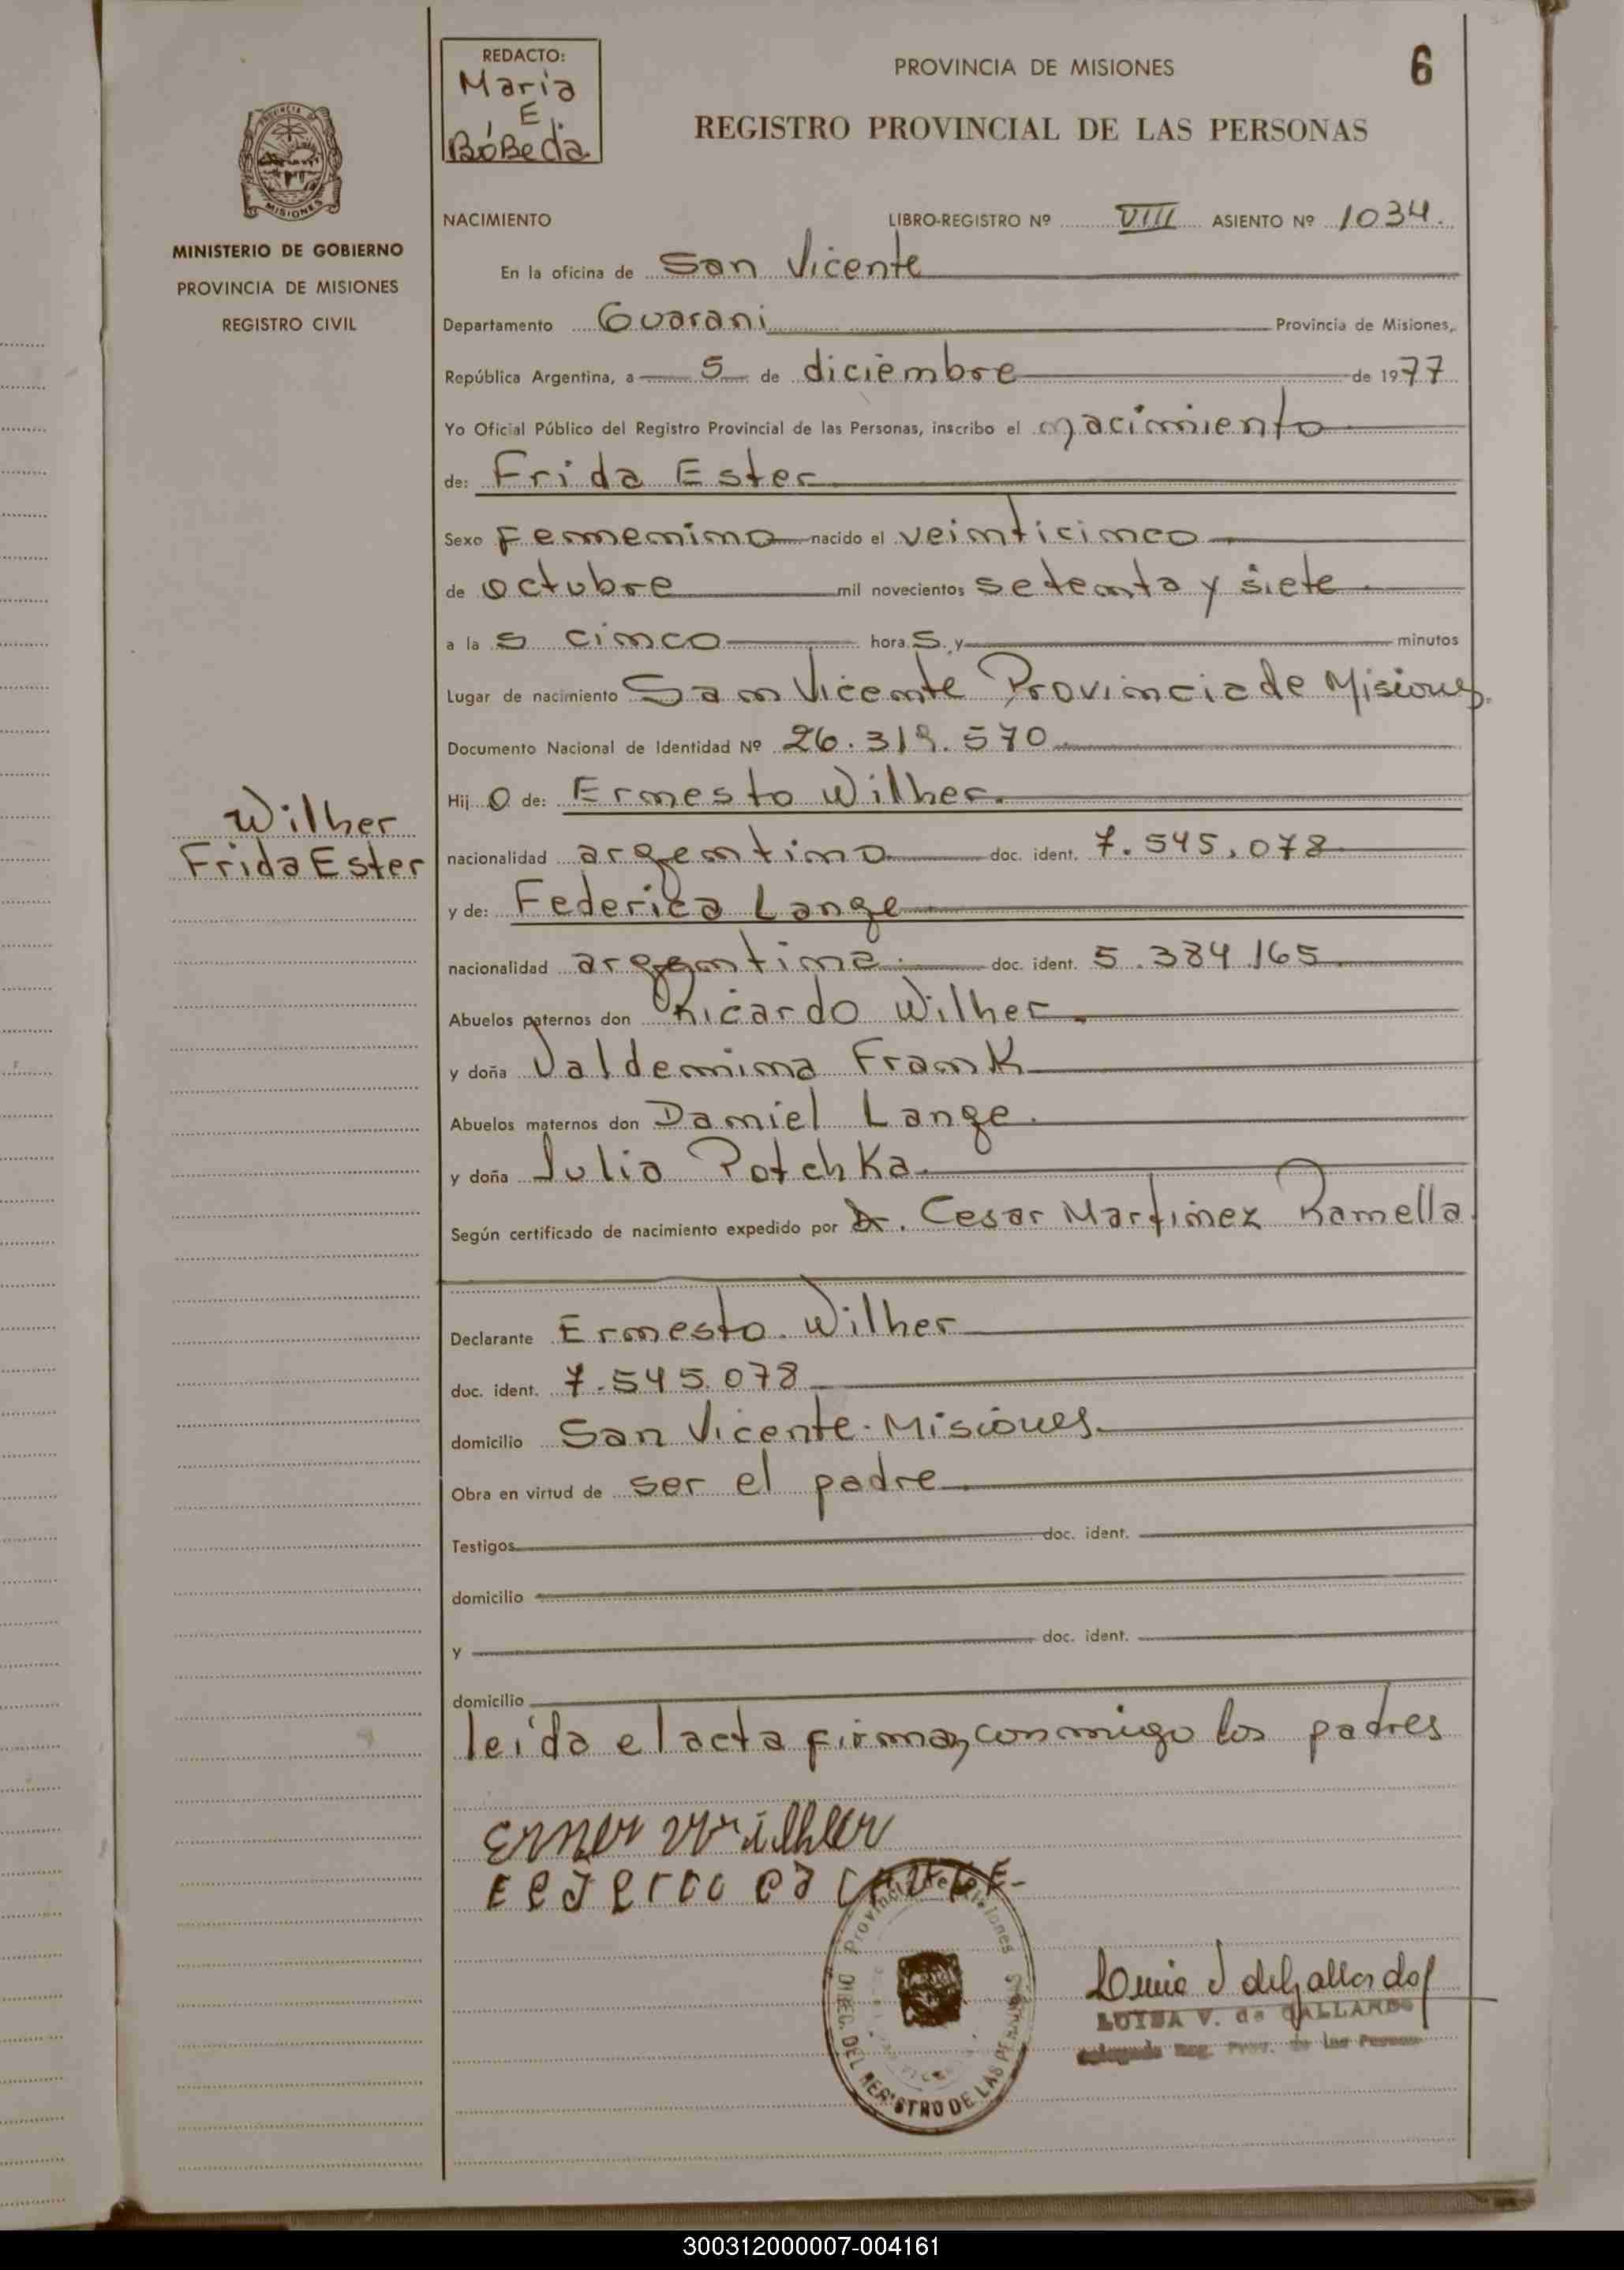 REDACTO:
Maria
E
BóBeda
PROVINCIA DE MISIONES
6
REGISTRO PROVINCIAL DE LAS PERSONAS
PROVINCIA DE
MISIONES
MINISTERIO DE GOBIERNO
PROVINCIA DE MISIONES
REGISTRO CIVIL
NACIMIENTO LIBRO-REGISTRO Nº VIII ASIENTO Nº 1034.
En la oficina de San Vicente
Departamento Guarani Provincia de Misiones,
República Argentina, a 5 de diciembre de 1977
Yo Oficial Público del Registro Provincial de las Personas, inscribo el nacimiento
de: Frida Ester
Sexo Femenino nacido el veinticinco
de octubre mil novecientos setenta y siete
a la s cinco hora s y minutos
Lugar de nacimiento San Vicente Provincia de Misiones
Documento Nacional de Identidad Nº 26.319.570
Wilher
Frida Ester
Hij o de: Ernesto Wilher.
nacionalidad argentino doc. ident. 7.545.078
y de: Federica Lange
nacionalidad argentina doc. ident. 5.384.165
Abuelos paternos don Ricardo Wilher
y doña Valdemina Frank
Abuelos maternos don Daniel Lange.
y doña Julia Potchka
Según certificado de nacimiento expedido por Dr. Cesar Martinez Ramella
Declarante Ernesto Wilher
doc. ident. 7.545.078
domicilio San Vicente-Misiones
Obra en virtud de ser el padre
Testigos doc. ident.
domicilio
y doc. ident.
domicilio
leida el acta firman conmigo los padres
Wilher
LANGE
Provincia de Misiones
DIREC. DEL REGISTRO DE LAS PERSONAS
LUISA V. de GALLARDO
300312000007-004161